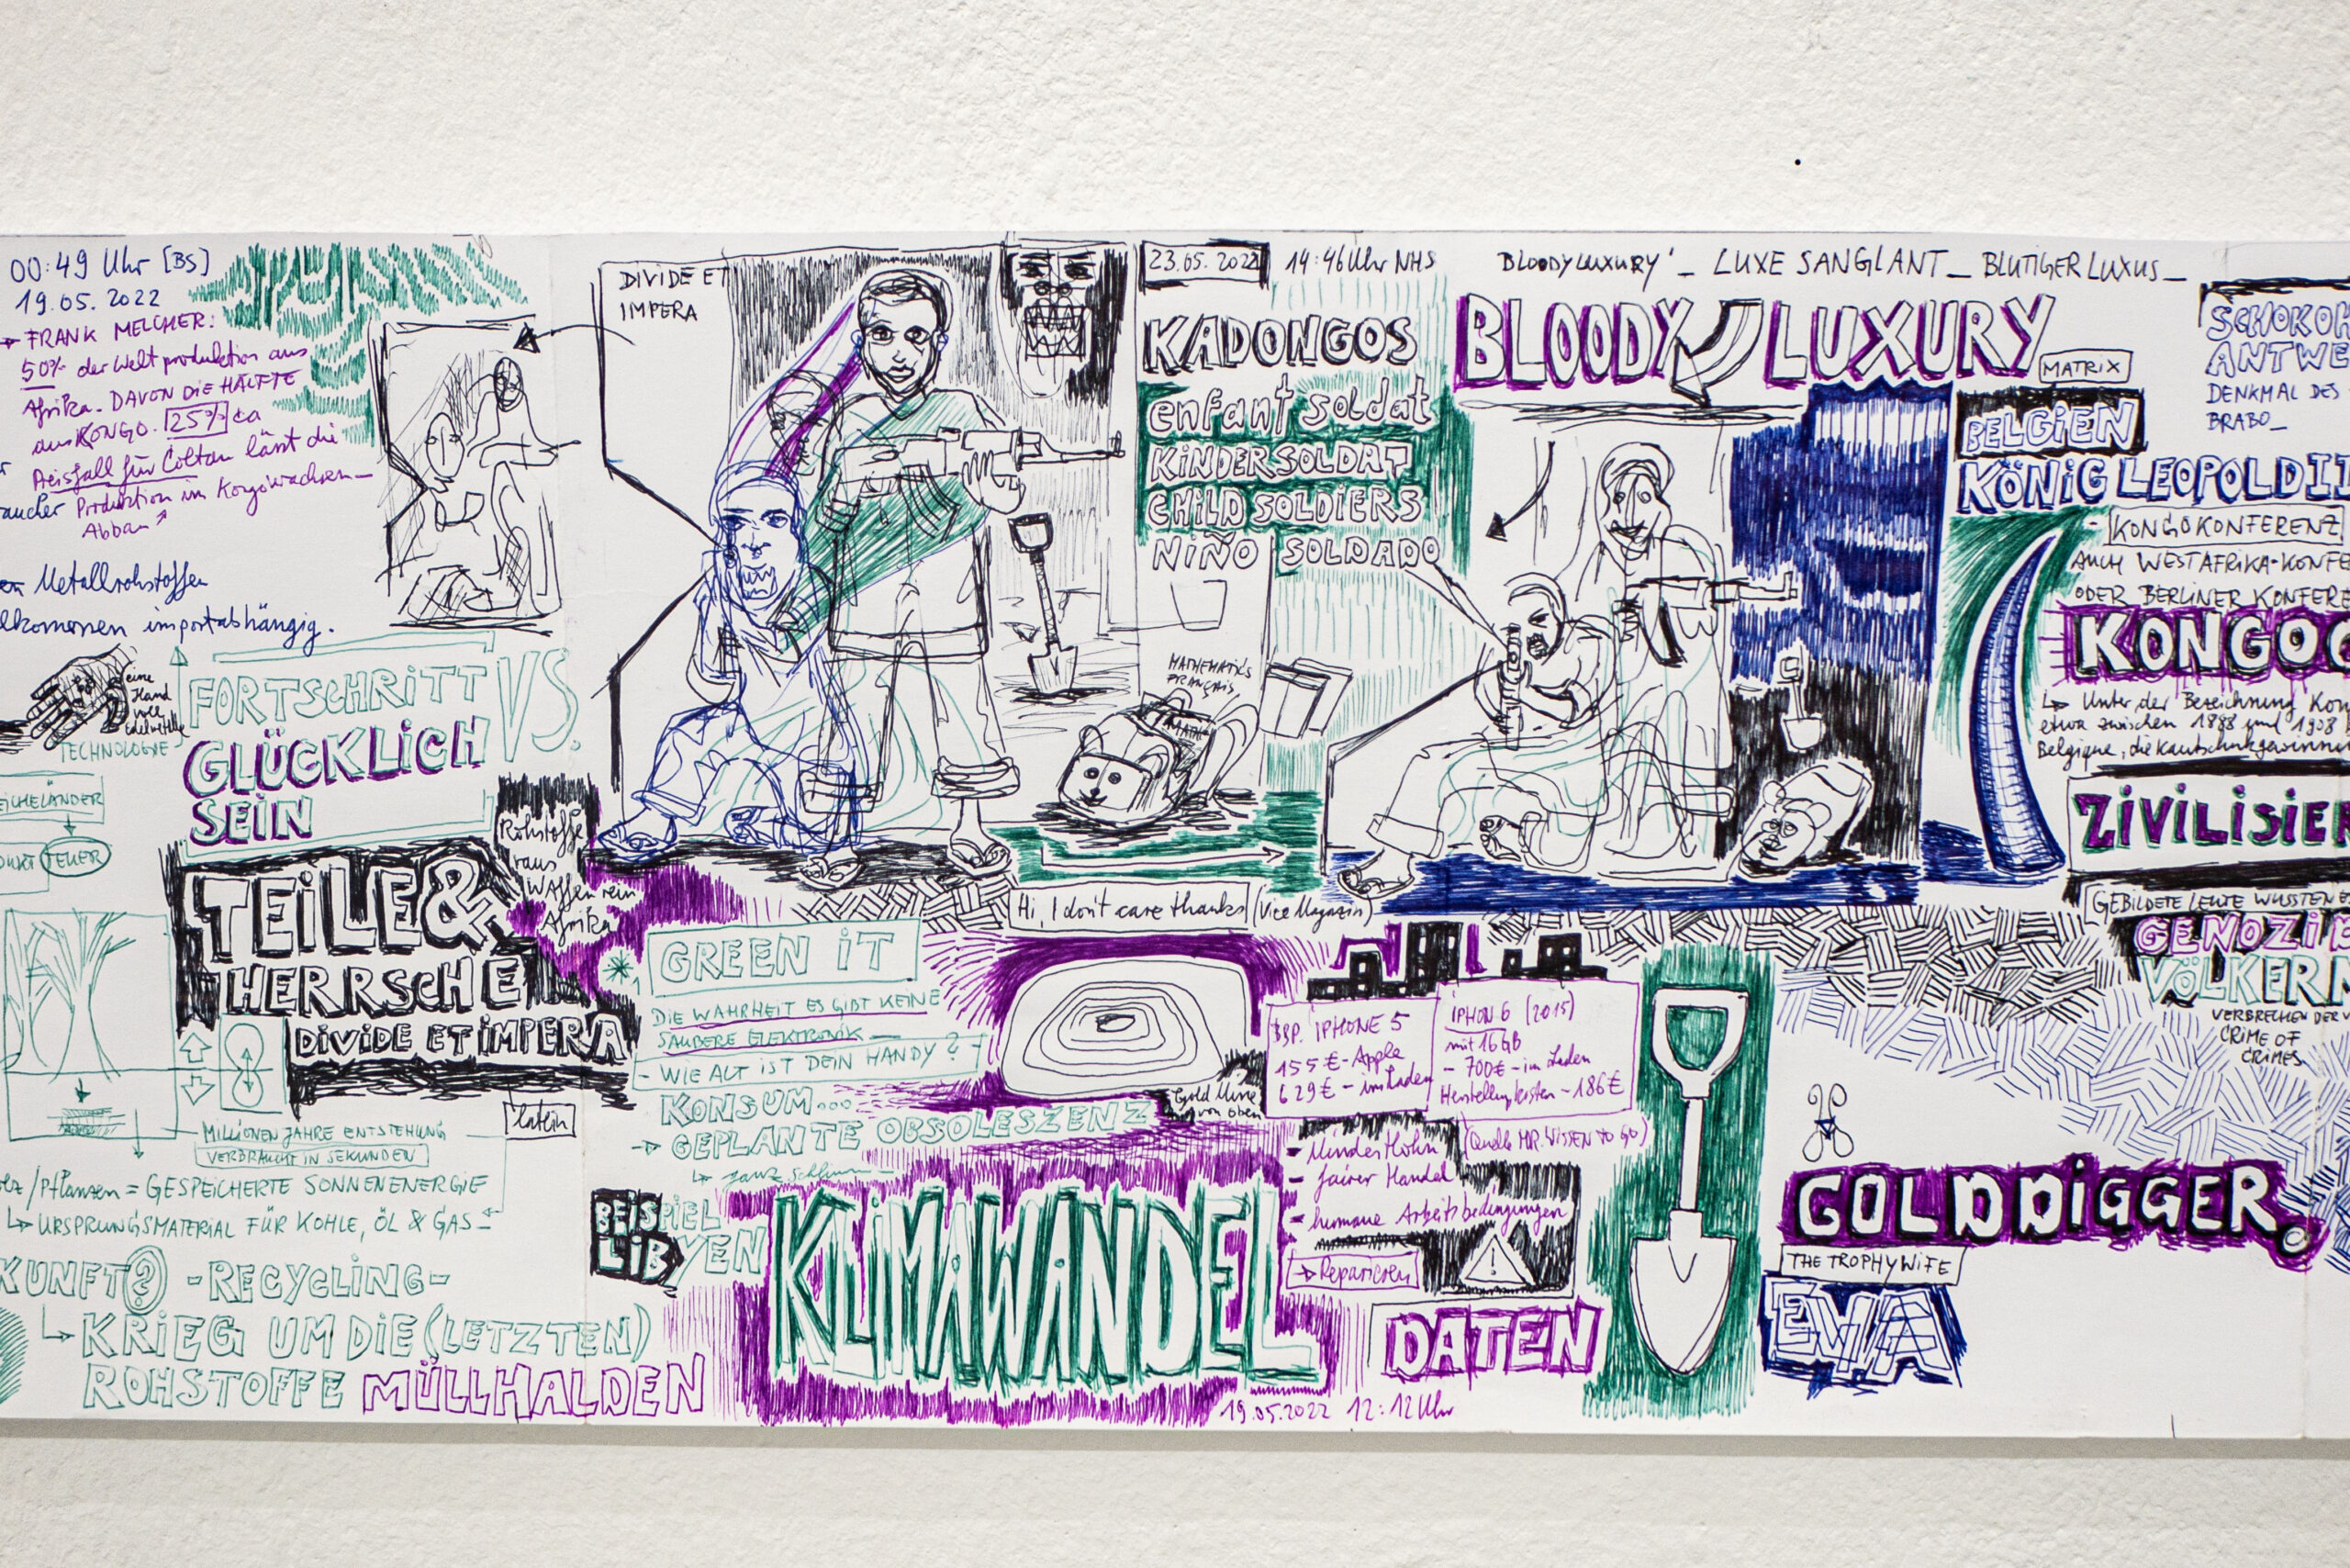 00:49 Uhr [BS]
19.05.2022
→ FRANK MELCHER:
50% der Weltproduktion aus
Afrika. DAVON DIE HÄLFTE
aus KONGO. 25% ca
Preisfall für Coltan lässt die
Produktion im Kongo wachsen_
Abbau ↗
Metallrohstoffen
importabhängig.
eine
Hand
voll
TECHNOLOGIE
FORTSCHRITT VS.
GLÜCKLICH
SEIN
FEUER
TEILE &
HERRSCHE
DIVIDE ET IMPERA
Latein
Rohstoffe
raus
Waffen rein
Afrika
MILLIONEN JAHRE ENTSTEHUNG
VERBRAUCHT IN SEKUNDEN
/Pflanzen = GESPEICHERTE SONNENENERGIE
↳ URSPRUNGSMATERIAL FÜR KOHLE, ÖL & GAS_
KUNFT? -RECYCLING-
↳ KRIEG UM DIE (LETZTEN)
ROHSTOFFE MÜLLHALDEN
DIVIDE ET
IMPERA
23.05.2022 14:46 Uhr NHS
KADONGOS
enfant soldat
KINDERSOLDAT
CHILD SOLDIERS
NIÑO SOLDADO
MATHEMATIKS
FRANÇAIS
MATHE
Hi, I don't care thanks (Vice Magazin)
GREEN IT
DIE WAHRHEIT ES GIBT KEINE
SAUBERE ELEKTRONIK_
- WIE ALT IST DEIN HANDY?
KONSUM...
→ GEPLANTE OBSOLESZENZ
↳ ganz schlimm
Gold Mine
von oben
BEISPIEL
LIBYEN
KLIMAWANDEL
BSP. IPHONE 5
155€ - Apple
629€ - im Laden
IPHON 6 (2015)
mit 16GB
- 700€ - im Laden
Herstellungskosten - 186€
(Quelle MR. WISSEN TO GO)
- Mindestlohn
- fairer Handel
- humane Arbeitsbedingungen
→ Reparieren
DATEN
19.05.2022 12:12 Uhr
BLOODY LUXURY'_ LUXE SANGLANT_ BLUTIGER LUXUS_
BLOODY LUXURY
MATRIX
SCHOKO
ANTWE
DENKMAL DES
BRABO_
BELGIEN
KÖNIG LEOPOLD II
- KONGOKONFERENZ
AUCH WESTAFRIKA-KONFE
ODER BERLINER KONFERE
KONGO
↳ Unter der Bezeichnung Kon
etwa zwischen 1888 und 1908
Belgique, die Kautschukgewinnu
ZIVILISIE
GEBILDETE LEUTE WUSSTEN
GENOZI
VÖLKER
VERBRECHEN DER
CRIME OF
CRIMES
GOLDDIGGER
THE TROPHY WIFE
EVA